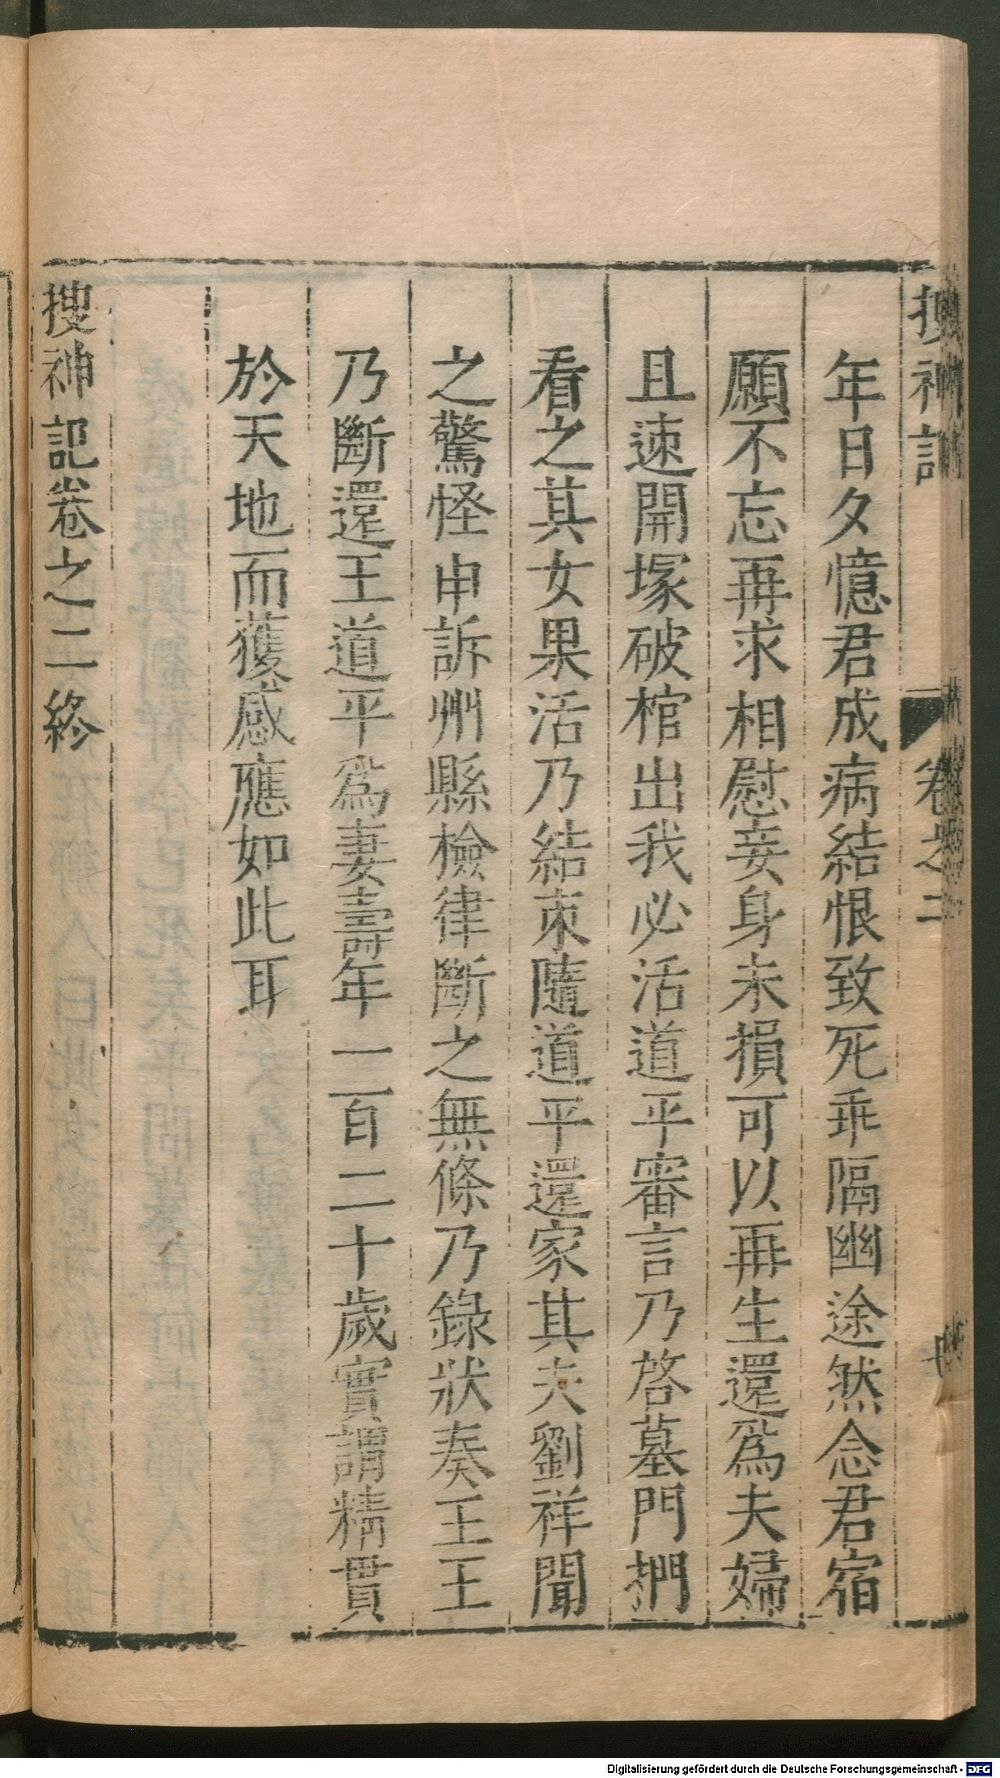 搜神記 卷之二
年日夕憶君成病結恨致死乖隔幽途然念君宿
願不忘再求相慰妾身未損可以再生還爲夫婦
且速開塚破棺出我必活道平審言乃啓墓門捫
看之其女果活乃結束隨道平還家其夫劉祥聞
之驚怪申訴州縣檢律斷之無條乃錄狀奏王王
乃斷還王道平爲妻壽年一百二十歲實謂精貫
於天地而獲感應如此耳
搜神記卷之二終
Digitalisierung gefördert durch die Deutsche Forschungsgemeinschaft - DFG